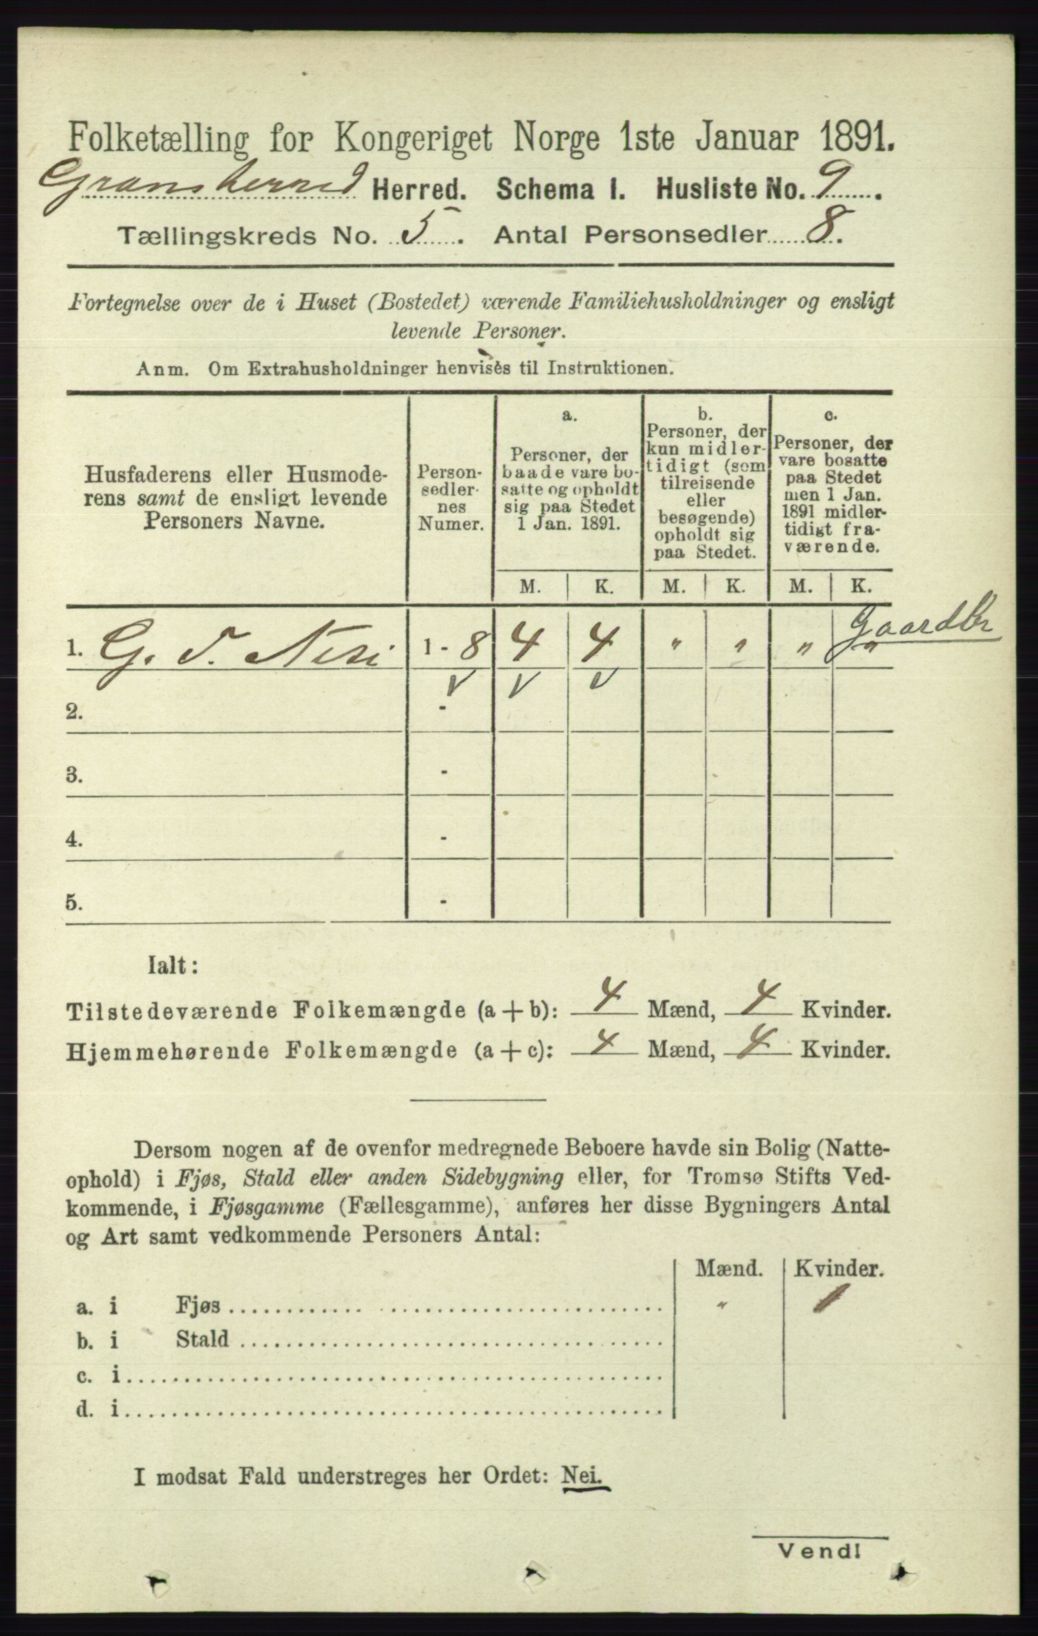 Folketælling for Kongeriget Norge 1ste Januar 1891.
Gransherred Herred. Schema I. Husliste No. 9.
Tællingskreds No. 5. Antal Personsedler 8.
Fortegnelse over de i Huset (Bostedet) værende Familiehusholdninger og ensligt
levende Personer.
Anm. Om Extrahusholdninger henvises til Instruktionen.
Husfaderens eller Husmode-
rens samt de ensligt levende
Personers Navne.
Person-
sedler-
nes
Numer.
a.
Personer, der
baade vare bo-
satte og opholdt
sig paa Stedet
1 Jan. 1891.
b.
Personer, der
kun midler-
tidigt (som
tilreisende
eller
besøgende)
opholdt sig
paa Stedet.
c.
Personer, der
vare bosatte
paa Stedet
men 1 Jan.
1891 midler-
tidigt fra-
værende.
M. K. M. K. M. K.
Gaardbr
1. G. T. 1 - 8 4 4 " " " "
V V V
2. -
3. -
4. -
5. -
Ialt:
Tilstedeværende Folkemængde (a + b): 4 Mænd, 4 Kvinder.
Hjemmehørende Folkemængde (a + c): 4 Mænd, 4 Kvinder.
Dersom nogen af de ovenfor medregnede Beboere havde sin Bolig (Natte-
ophold) i Fjøs, Stald eller anden Sidebygning eller, for Tromsø Stifts Ved-
kommende, i Fjøsgamme (Fællesgamme), anføres her disse Bygningers Antal
og Art samt vedkommende Personers Antal:
Mænd. Kvinder.
a. i Fjøs " 1
b. i Stald
c. i
d. i
I modsat Fald understreges her Ordet: Nei.
Vend!